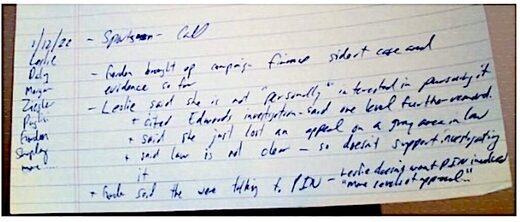 1/12/22 - Sportsman - Call
Leslie
Daly - Gordon brought up campaign finance side of case and
Morgan evidence so far
Ziegler - Leslie said she is not "personally" interested in pursuing it
+ cited Edwards investigation - said one level further removed.
Gordon + said she just lost an appeal on a gray area in law
Shapley + said law is not clear - so doesn't support investigating
more... it
+ said the were talking to PIN - Leslie doesnt want PIN involved
"more levels of approval"